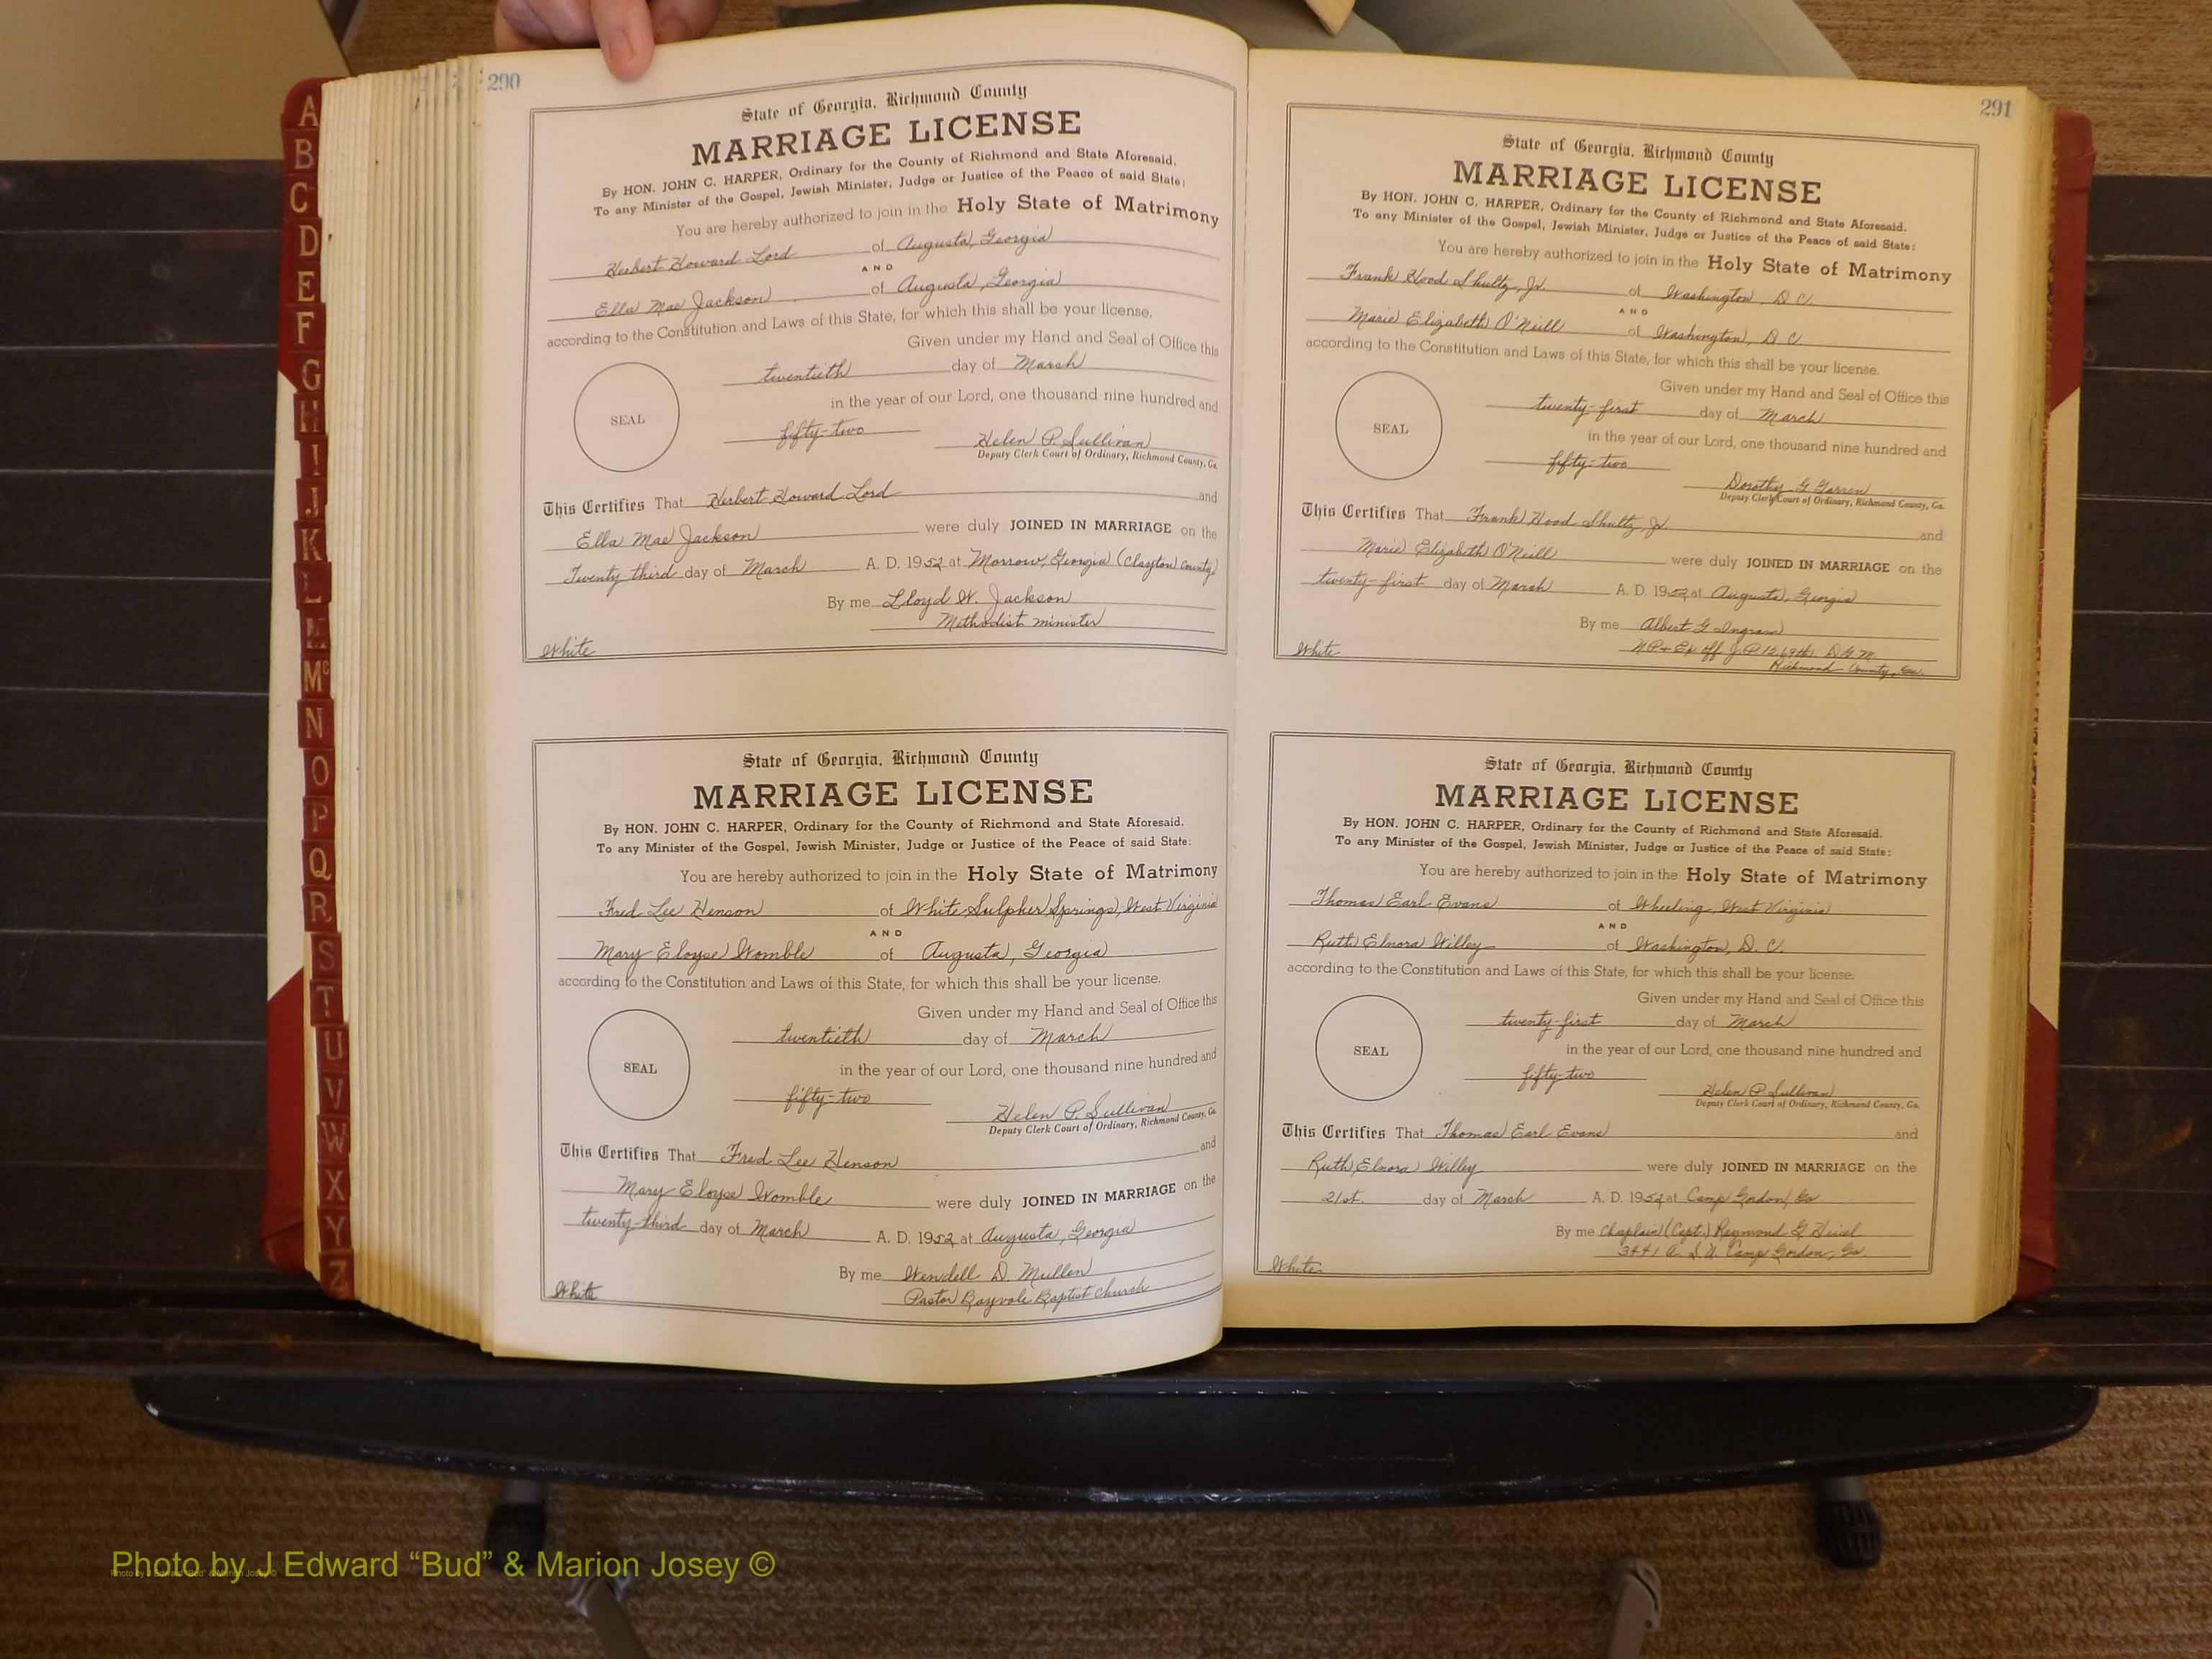 290
State of Georgia, Richmond County
MARRIAGE LICENSE
By HON. JOHN C. HARPER, Ordinary for the County of Richmond and State Aforesaid.
To any Minister of the Gospel, Jewish Minister, Judge or Justice of the Peace of said State:
You are hereby authorized to join in the Holy State of Matrimony
Herbert Howard Lord of Augusta, Georgia
AND
Ella Mae Jackson of Augusta, Georgia
according to the Constitution and Laws of this State, for which this shall be your license.
Given under my Hand and Seal of Office this
twentieth day of March
in the year of our Lord, one thousand nine hundred and
SEAL
fifty-two Helen P. Sullivan
Deputy Clerk Court of Ordinary, Richmond County, Ga.
This Certifies That Herbert Howard Lord and
Ella Mae Jackson were duly JOINED IN MARRIAGE on the
Twenty third day of March A. D. 1952 at Morrow, Georgia (Clayton County)
By me Lloyd W. Jackson
Methodist minister
White
State of Georgia, Richmond County
MARRIAGE LICENSE
By HON. JOHN C. HARPER, Ordinary for the County of Richmond and State Aforesaid.
To any Minister of the Gospel, Jewish Minister, Judge or Justice of the Peace of said State:
You are hereby authorized to join in the Holy State of Matrimony
Fred Lee Henson of White Sulpher Springs, West Virginia
AND
Mary Eloyse Womble of Augusta, Georgia
according to the Constitution and Laws of this State, for which this shall be your license.
Given under my Hand and Seal of Office this
twentieth day of March
in the year of our Lord, one thousand nine hundred and
SEAL
fifty-two Helen P. Sullivan
Deputy Clerk Court of Ordinary, Richmond County, Ga.
This Certifies That Fred Lee Henson and
Mary Eloyse Womble were duly JOINED IN MARRIAGE on the
twenty-third day of March A. D. 1952 at Augusta, Georgia
By me Wendell D. Mullen
Pastor Bayvale Baptist Church
White
291
State of Georgia, Richmond County
MARRIAGE LICENSE
By HON. JOHN C. HARPER, Ordinary for the County of Richmond and State Aforesaid.
To any Minister of the Gospel, Jewish Minister, Judge or Justice of the Peace of said State:
You are hereby authorized to join in the Holy State of Matrimony
Frank Hood Shultz, Jr. of Washington, D C
AND
Marie Elizabeth O'Neill of Washington, D C
according to the Constitution and Laws of this State, for which this shall be your license.
Given under my Hand and Seal of Office this
twenty-first day of March
in the year of our Lord, one thousand nine hundred and
SEAL
fifty-two Dorothy G.
Deputy Clerk Court of Ordinary, Richmond County, Ga.
This Certifies That Frank Hood Shultz, Jr. and
Marie Elizabeth O'Neill were duly JOINED IN MARRIAGE on the
twenty-first day of March A. D. 1952 at Augusta, Georgia
By me Albert G Ingram
N P + Ex off J. P. 1269th D G M.
Richmond County, Ga.
White
State of Georgia, Richmond County
MARRIAGE LICENSE
By HON. JOHN C. HARPER, Ordinary for the County of Richmond and State Aforesaid.
To any Minister of the Gospel, Jewish Minister, Judge or Justice of the Peace of said State:
You are hereby authorized to join in the Holy State of Matrimony
Thomas Earl Evans of Wheeling, West Virginia
AND
Ruth Elnora Willey of Washington, D. C.
according to the Constitution and Laws of this State, for which this shall be your license.
Given under my Hand and Seal of Office this
twenty-first day of March
in the year of our Lord, one thousand nine hundred and
SEAL
fifty-two Helen P Sullivan
Deputy Clerk Court of Ordinary, Richmond County, Ga.
This Certifies That Thomas Earl Evans and
Ruth Elnora Willey were duly JOINED IN MARRIAGE on the
21st. day of March A. D. 1952 at Camp Gordon, Ga
By me Chaplain (Capt.) Raymond G.
3441 A. S. U. Camp Gordon, Ga.
White
A
B
C
D
E
F
G
H
I
J
K
L
M
Mc
N
O
P
Q
R
S
T
U
V
W
X
Y
Z
Photo by J Edward “Bud” & Marion Josey ©
Photo by J Edward “Bud” & Marion Josey ©